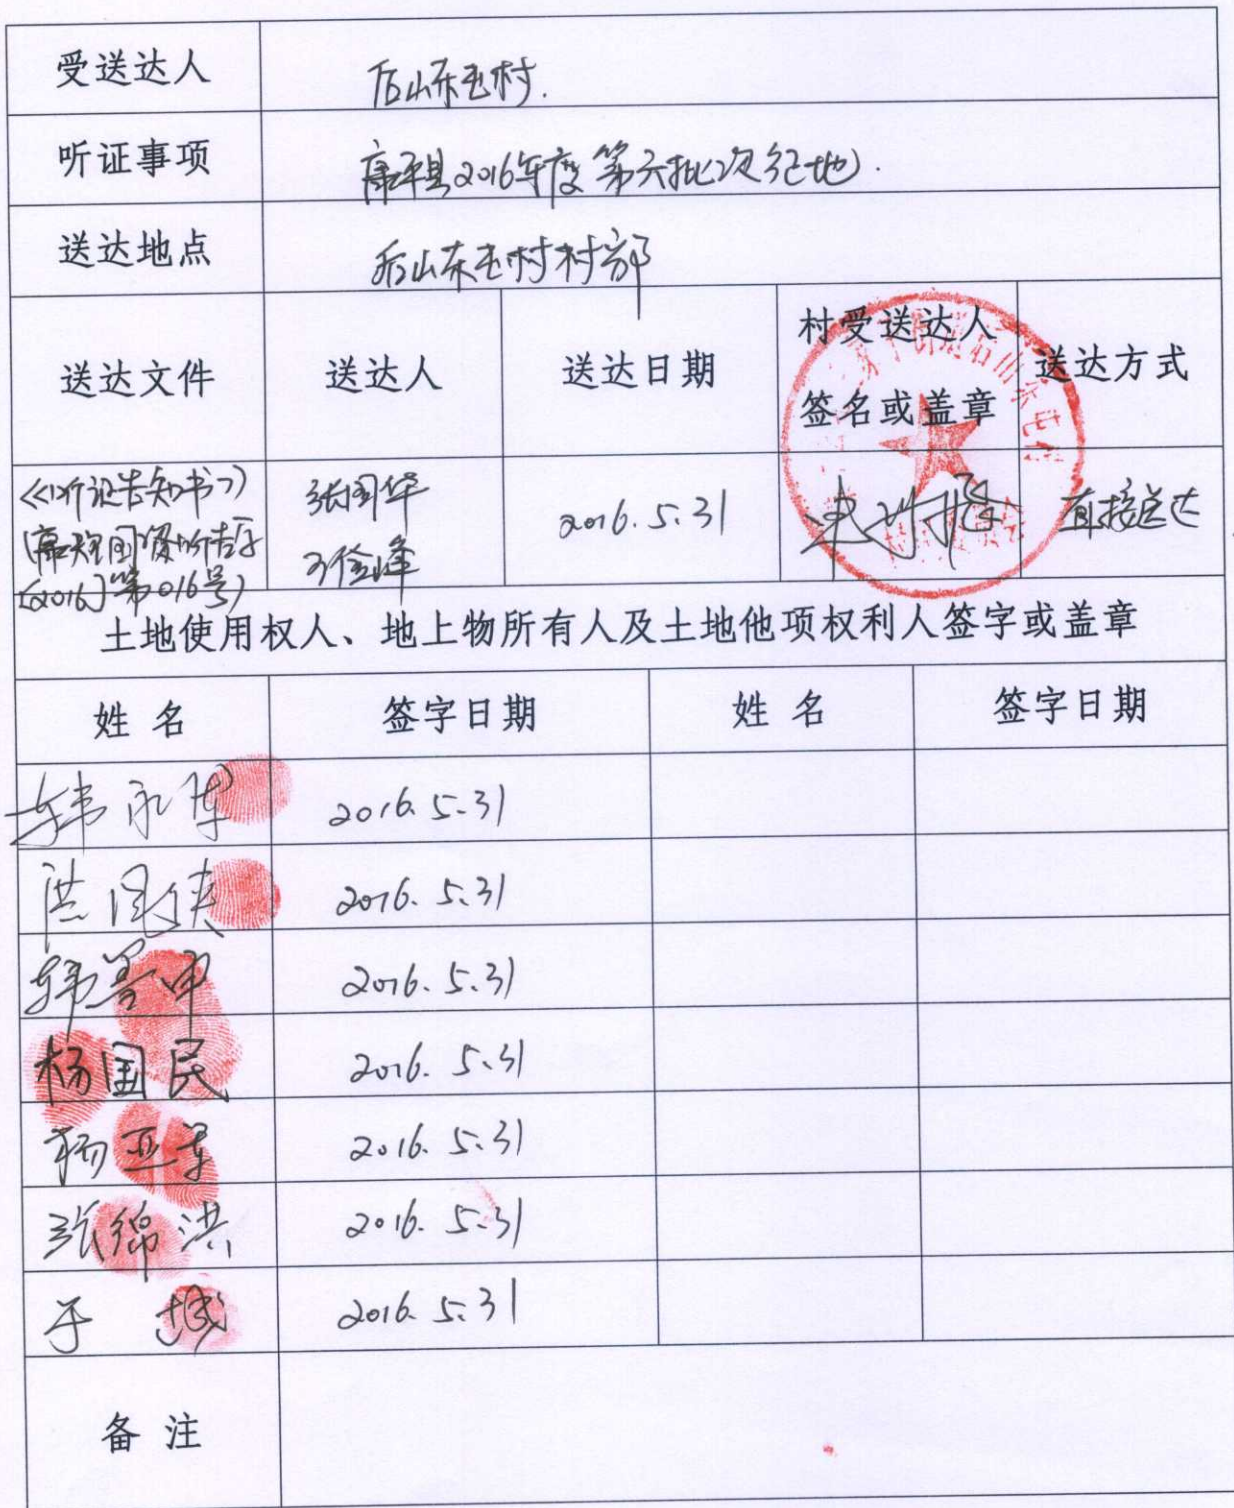 受送达人
后山东屯村.
听证事项
康平县2016年度第六批次征地.
送达地点
后山东屯村村部
送达文件
送达人
送达日期
村受送达人
签名或盖章
送达方式
《听证告知书》
(康平国资听告字
[2016]第016号)
张国华
2016.5.31
直接送达
土地使用权人、地上物所有人及土地他项权利人签字或盖章
姓 名
签字日期
姓 名
签字日期
2016.5.31
2016.5.31
2016.5.31
杨国民
2016.5.31
杨亚军
2016.5.31
张绵洪
2016.5.31
于 城
2016.5.31
备 注